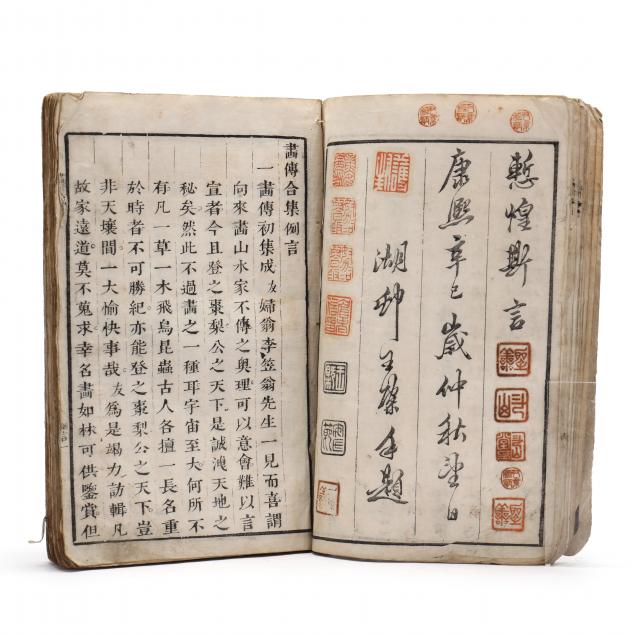 慙惶斯言
康熙辛巳歲仲秋望日
湖邨王槩手題
畫傳合集例言
一畫傳初集成友婦翁李笠翁先生一見而喜謂
向來畫山水家不傳之奧理可以意會難以言
宣者今且登之棗梨公之天下是誠洩天地之
秘矣然此不過畫之一種耳宇宙至大何所不
有凡一草一木飛鳥昆蟲古人各擅一長名重
於時者不可勝紀亦能登之棗梨公之天下豈
非天壤間一大愉快事哉友爲是竭力訪輯凡
故家遠道莫不蒐求幸名畫如林可供鑒賞但